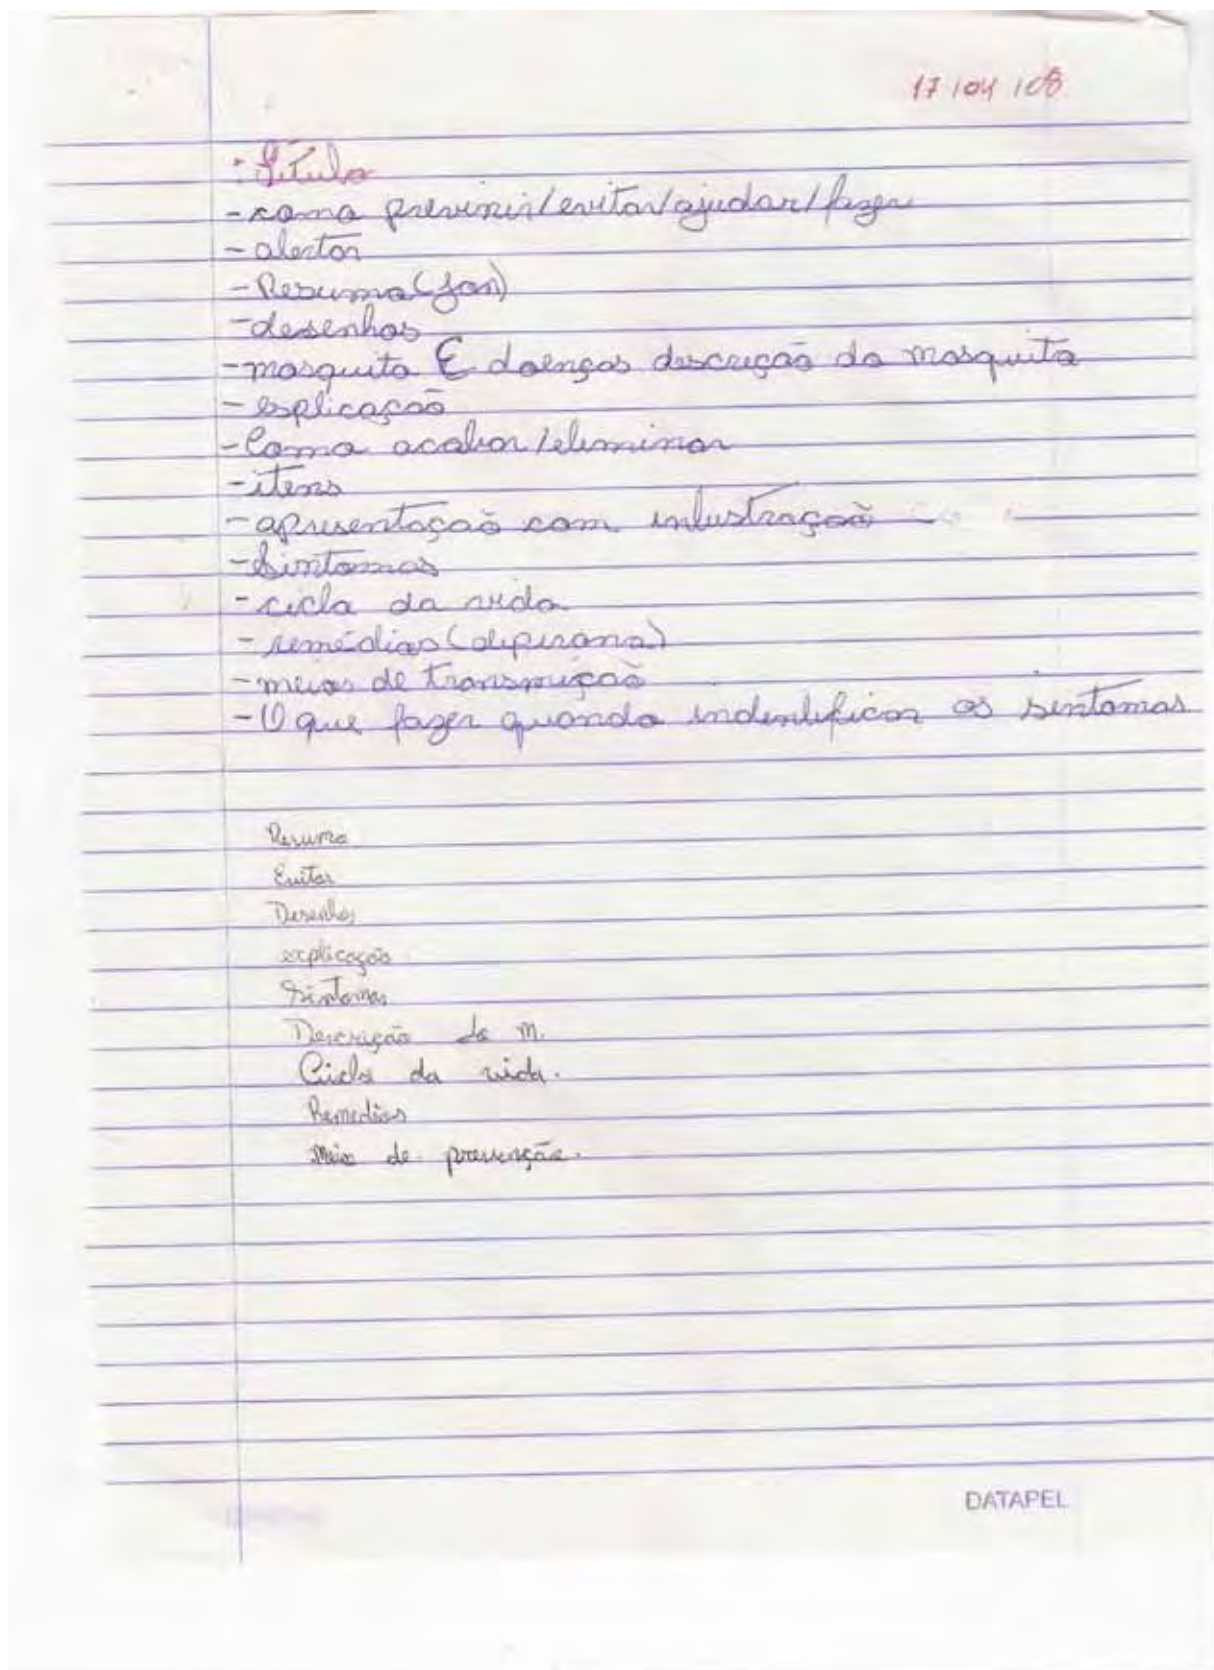 17/04/08
: Título
- como previnir/evitar/ajudar/fazer
- alertar
- Resumo
- desenhos
- mosquito E doenças descrição do mosquito
- esplicação
- Como acabar/eliminar
- itens
- apresentação com inlustração
- Sintomas
- ciclo da vida
- remédios (dipirona)
- meios de transmição
- O que fazer quando indentificar os sintomas
Resumo
Evitar
Desenhos
explicação
Sintomas
Descrição do m.
Ciclo da vida.
Remedios
Meio de prevenção.
DATAPEL